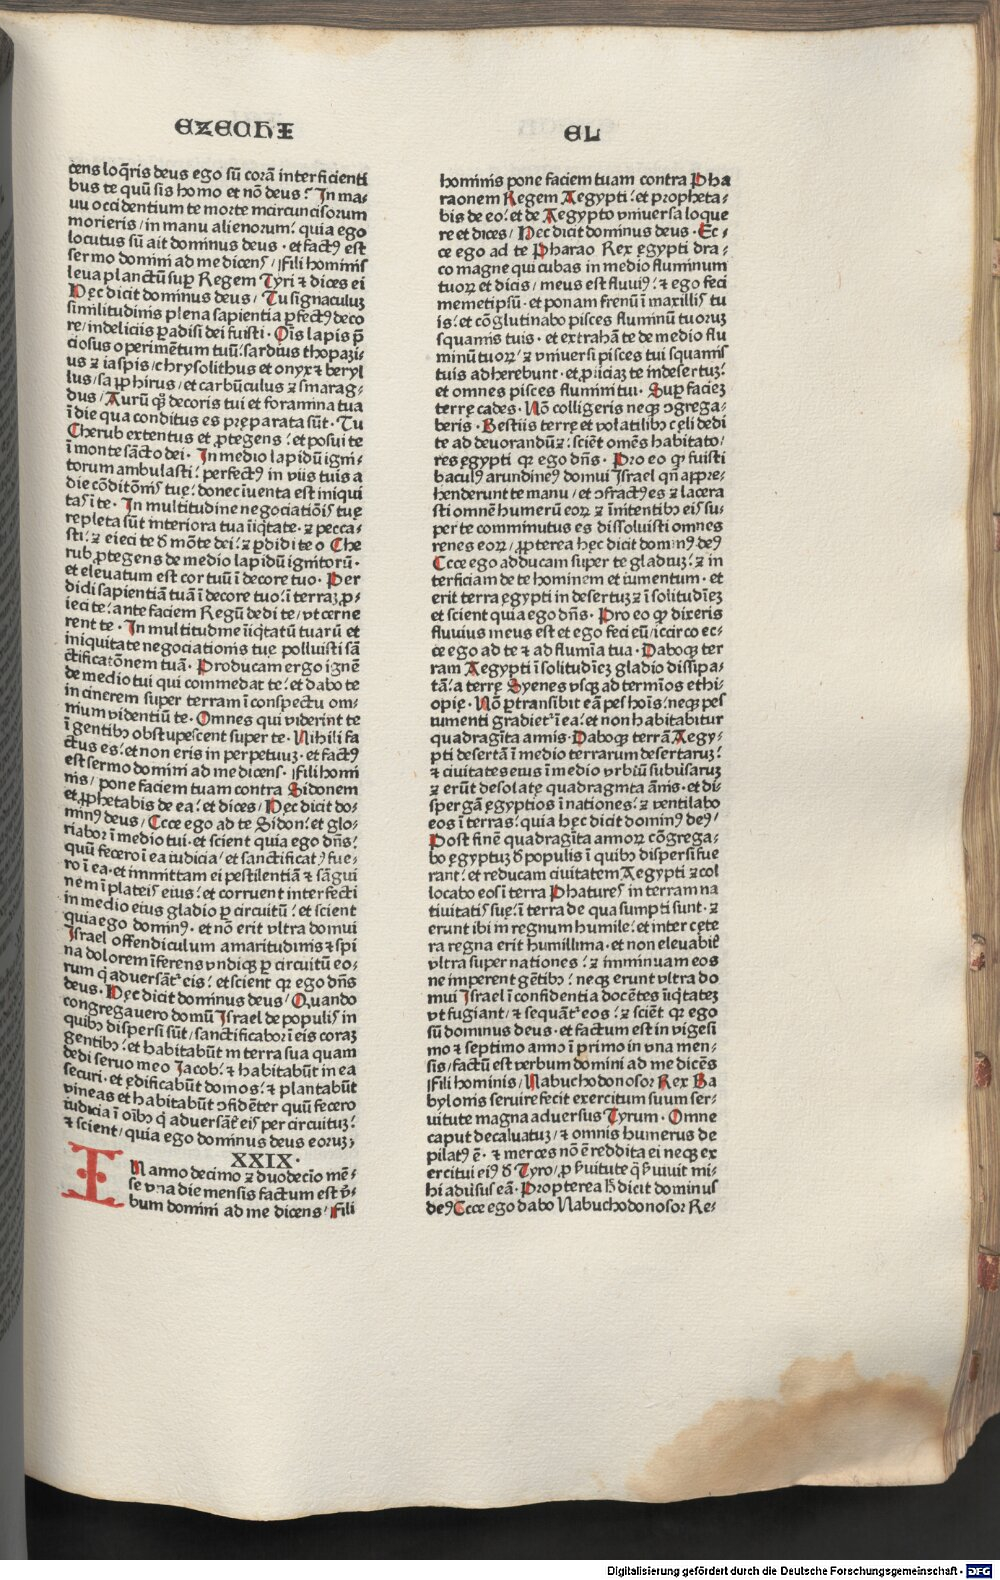 EZECHI
EL
cens loq̄ris deus ego sū corā interficienti
bus te quū sis homo et nō deus? In ma⸗
uu occidentium te morte incircuncisorum
morieris/in manu alienorum? quia ego
locutus sū ait dominus deus · et factꝰ est
sermo domini ad me dicens/ Fili hominis
leua planctū suꝑ Regem Tyri ⁊ dices ei
Hęc dicit dominus deus/ Tu signaculuꝫ
similitudinis plena sapientia ꝑfectꝰ deco
re/indeliciis ꝑadisi dei fuisti · Oīs lapis p̄
ciosus operimētum tuū? sardius thopazi⸗
us ⁊ iaspis/chrysolithus et onyx ⁊ beryl
lus/sapphirus/et carbūculus ⁊ smarag⸗
dus/Aurū qꝫ decoris tui et foramina tua
ī die qua conditus es pręparata sūt · Tu
Cherub extentus et ꝓtegens? et posui te
ī monte sācto dei · In medio lapidū igni⸗
torum ambulasti? perfectꝰ in viis tuis a
die cōditōnis tuę? donec īuenta est iniqui
tas ī te · In multitudine negociatiōis tuę
repleta sūt interiora tua īiq̄tate · ⁊ pecca⸗
sti? ⁊ eieci te đ mōte dei? ⁊ ꝑdidi te o Che
rub ꝓtegens de medio lapidū ignitorū ·
et eleuatum est cor tuū ī decore tuo · Per
didi sapientiā tuā ī decore tuo? ī terraꝫ ꝓ⸗
ieci te? ante faciem Regū dedi te/vt cerne
rent te · In multitudine īiq̄tatū tuarū et
iniquitate negociationis tuę polluisti sā
ctificatōnem tuā · Producam ergo ignē
de medio tui qui commedat te? et dabo te
in cinerem super terram ī conspectu om⸗
nium videntiū te · Omnes qui viderint te
ī gentibꝫ obstupescent super te · Nihili fa
ctus es? et non eris in perpetuuꝫ · et factꝰ
est sermo domini ad me dicens · Fili homi
nis/pone faciem tuam contra Sidonem
et ꝓphetabis de ea? et dices/Hęc dicit do⸗
minꝰ deus/Ecce ego ad te Sidon? et glo⸗
riabor ī medio tui · et scient quia ego dn̄s?
quū fecero ī ea iudicia/et sanctificatꝰ fue⸗
ro ī ea · et immittam ei pestilentiā ⁊ sāgui
nem ī plateis eius? et corruent interfecti
in medio eius gladio ꝑ circuitū? et scient
quia ego dominꝰ · et nō erit vltra domui
Israel offendiculum amaritudinis ⁊ spi
na dolorem īferens vndiqꝫ ꝑ circuitū eo⸗
rum q̄ aduersāt᷑ eis? et scient qꝛ ego dn̄s
deus · Hęc dicit dominus deus/Quando
congregauero domū Israel de populis in
quibꝫ dispersi sūt/sanctificabor ī eis coraꝫ
gentibꝫ? et habitabūt in terra sua quam
dedi seruo meo Jacob? ⁊ habitabūt in ea
securi · et ędificabūt domos? ⁊ plantabūt
vineas et habitabūt ↄfidēter quū fecero
iudicia ī oībꝫ q̄ aduersāt᷑ eis per circuituꝫ?
⁊ scient/quia ego dominus deus eoruꝫ?
XXIX·
IN anno decimo ⁊ duodecīo mē⸗
se vna die mensis factum est v̄⸗
bum domini ad me dicens/Fili
hominis pone faciem tuam contra Pha
raonem Regem Aegypti? et propheta⸗
bis de eo? et de Aegypto vniuersa loque
re et dices/Hęc dicit dominus deus · Ec⸗
ce ego ad te Pharao Rex ęgypti dra⸗
co magne qui cubas in medio fluminum
tuoꝝ et dicis/meus est fluuiꝰ? ⁊ ego feci
memetipsū · et ponam frenū ī maxillis tu
is? et cōglutinabo pisces fluminū tuoruꝫ
squamis tuis · et extrahā te de medio flu
minū tuoꝝ? ⁊ vniuersi pisces tui squamis
tuis adherebunt · et ꝓiiciaꝫ te indesertuꝫ?
et omnes pisces fluminī tui · Suꝑ facieꝫ
terrę cades · Nō colligeris neqꝫ ↄgrega⸗
beris · Bestiis terrę et volatilibꝫ cęli dedi
te ad deuorandūꝫ? sciēt omēs habitato/
res ęgypti qꝛ ego dn̄s · Pro eo qꝫ fuisti
baculꝰ arundineꝰ domui Israel qn̄ appre⸗
henderunt te manu/et ↄfractꝰ es ⁊ lacera
sti omnē humerū eoꝝ ⁊ īnitentibꝫ eis su⸗
per te comminutus es dissoluisti omnes
renes eoꝝ/ꝓpterea hęc dicit dominꝰ deꝰ
Ecce ego adducam super te gladiuꝫ? ⁊ in
terficiam de te hominem et iumentum · et
erit terra ęgypti in desertuꝫ ⁊ ī solitudīeꝫ
et scient quia ego dn̄s · Pro eo qꝫ dixeris
fluuius meus est et ego feci eū/iccirco ec⸗
ce ego ad te ⁊ ad flumīa tua · Daboqꝫ ter
ram Aegypti ī solitudīeꝫ gladio dissipa⸗
tā? a terrę Syenes vsqꝫ ad termīos ethi⸗
opię · Nō ꝑtransibit eā pes hoīs? neqꝫ pes
iumenti gradiet᷑ ī ea? et non habitabitur
quadragīta annis · Daboqꝫ terrā Aegy⸗
pti desertā ī medio terrarum desertaruꝫ?
⁊ ciuitates eius ī medio vrbiū subuersaruꝫ
⁊ erūt desolatę quadraginta ānis · et di⸗
spergā ęgyptios ī nationes? ⁊ ventilabo
eos ī terras? quia hęc dicit dominꝰ deꝰ/
Post finē quadragīta annoꝝ cōgrega⸗
bo ęgyptuꝫ đ populis ī quibꝫ dispersi fue
rant? et reducam ciuitatem Aegypti ⁊ col
locabo eos ī terra Phatures in terram na
tiuitatis suę? ī terra de qua sumpti sunt · ⁊
erunt ibi in regnum humile? et inter cęte
ra regna erit humillima · et non eleuabit᷑
vltra super nationes? ⁊ imminuam eos
ne imperent gētibꝫ? neqꝫ erunt vltra do
mui Israel ī confidentia docētes īiq̄tateꝫ
vt fugiant/⁊ sequāt᷑ eos? ⁊ sciēt qꝛ ego
sū dominus deus · et factum est in vigesi
mo ⁊ septimo anno ī primo in vna men⸗
sis/factū est verbum domini ad me dicēs
Fili hominis/Nabuchodonosor Rex Ba
bylonis seruire fecit exercitum suum ser⸗
uitute magna aduersus Tyrum · Omne
caput decaluatuꝫ/⁊ omnis humerus de
pilatꝰ ē · ⁊ merces nō ē reddita ei neqꝫ ex
ercitui eiꝰ đ Tyro/ꝓ s̄uitute q̄ s̄uiuit mi⸗
hi adūsus eā · Propterea h̄ dicit dominus
deꝰ Ecce ego dabo Nabuchodonosor Re⸗
Digitalisierung gefördert durch die Deutsche Forschungsgemeinschaft - DFG